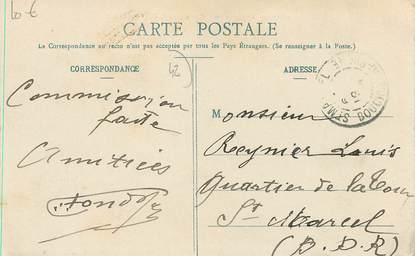 10 €
CARTE POSTALE
La Correspondance au recto n'est pas acceptée par tous les Pays Étrangers. (Se renseigner à la Poste.)
CORRESPONDANCE
42
Commission
faite
Amitiés
ADRESSE
Monsieur
Reynier Louis
Quartier de la Tour
St Marcel
(B. D. R)